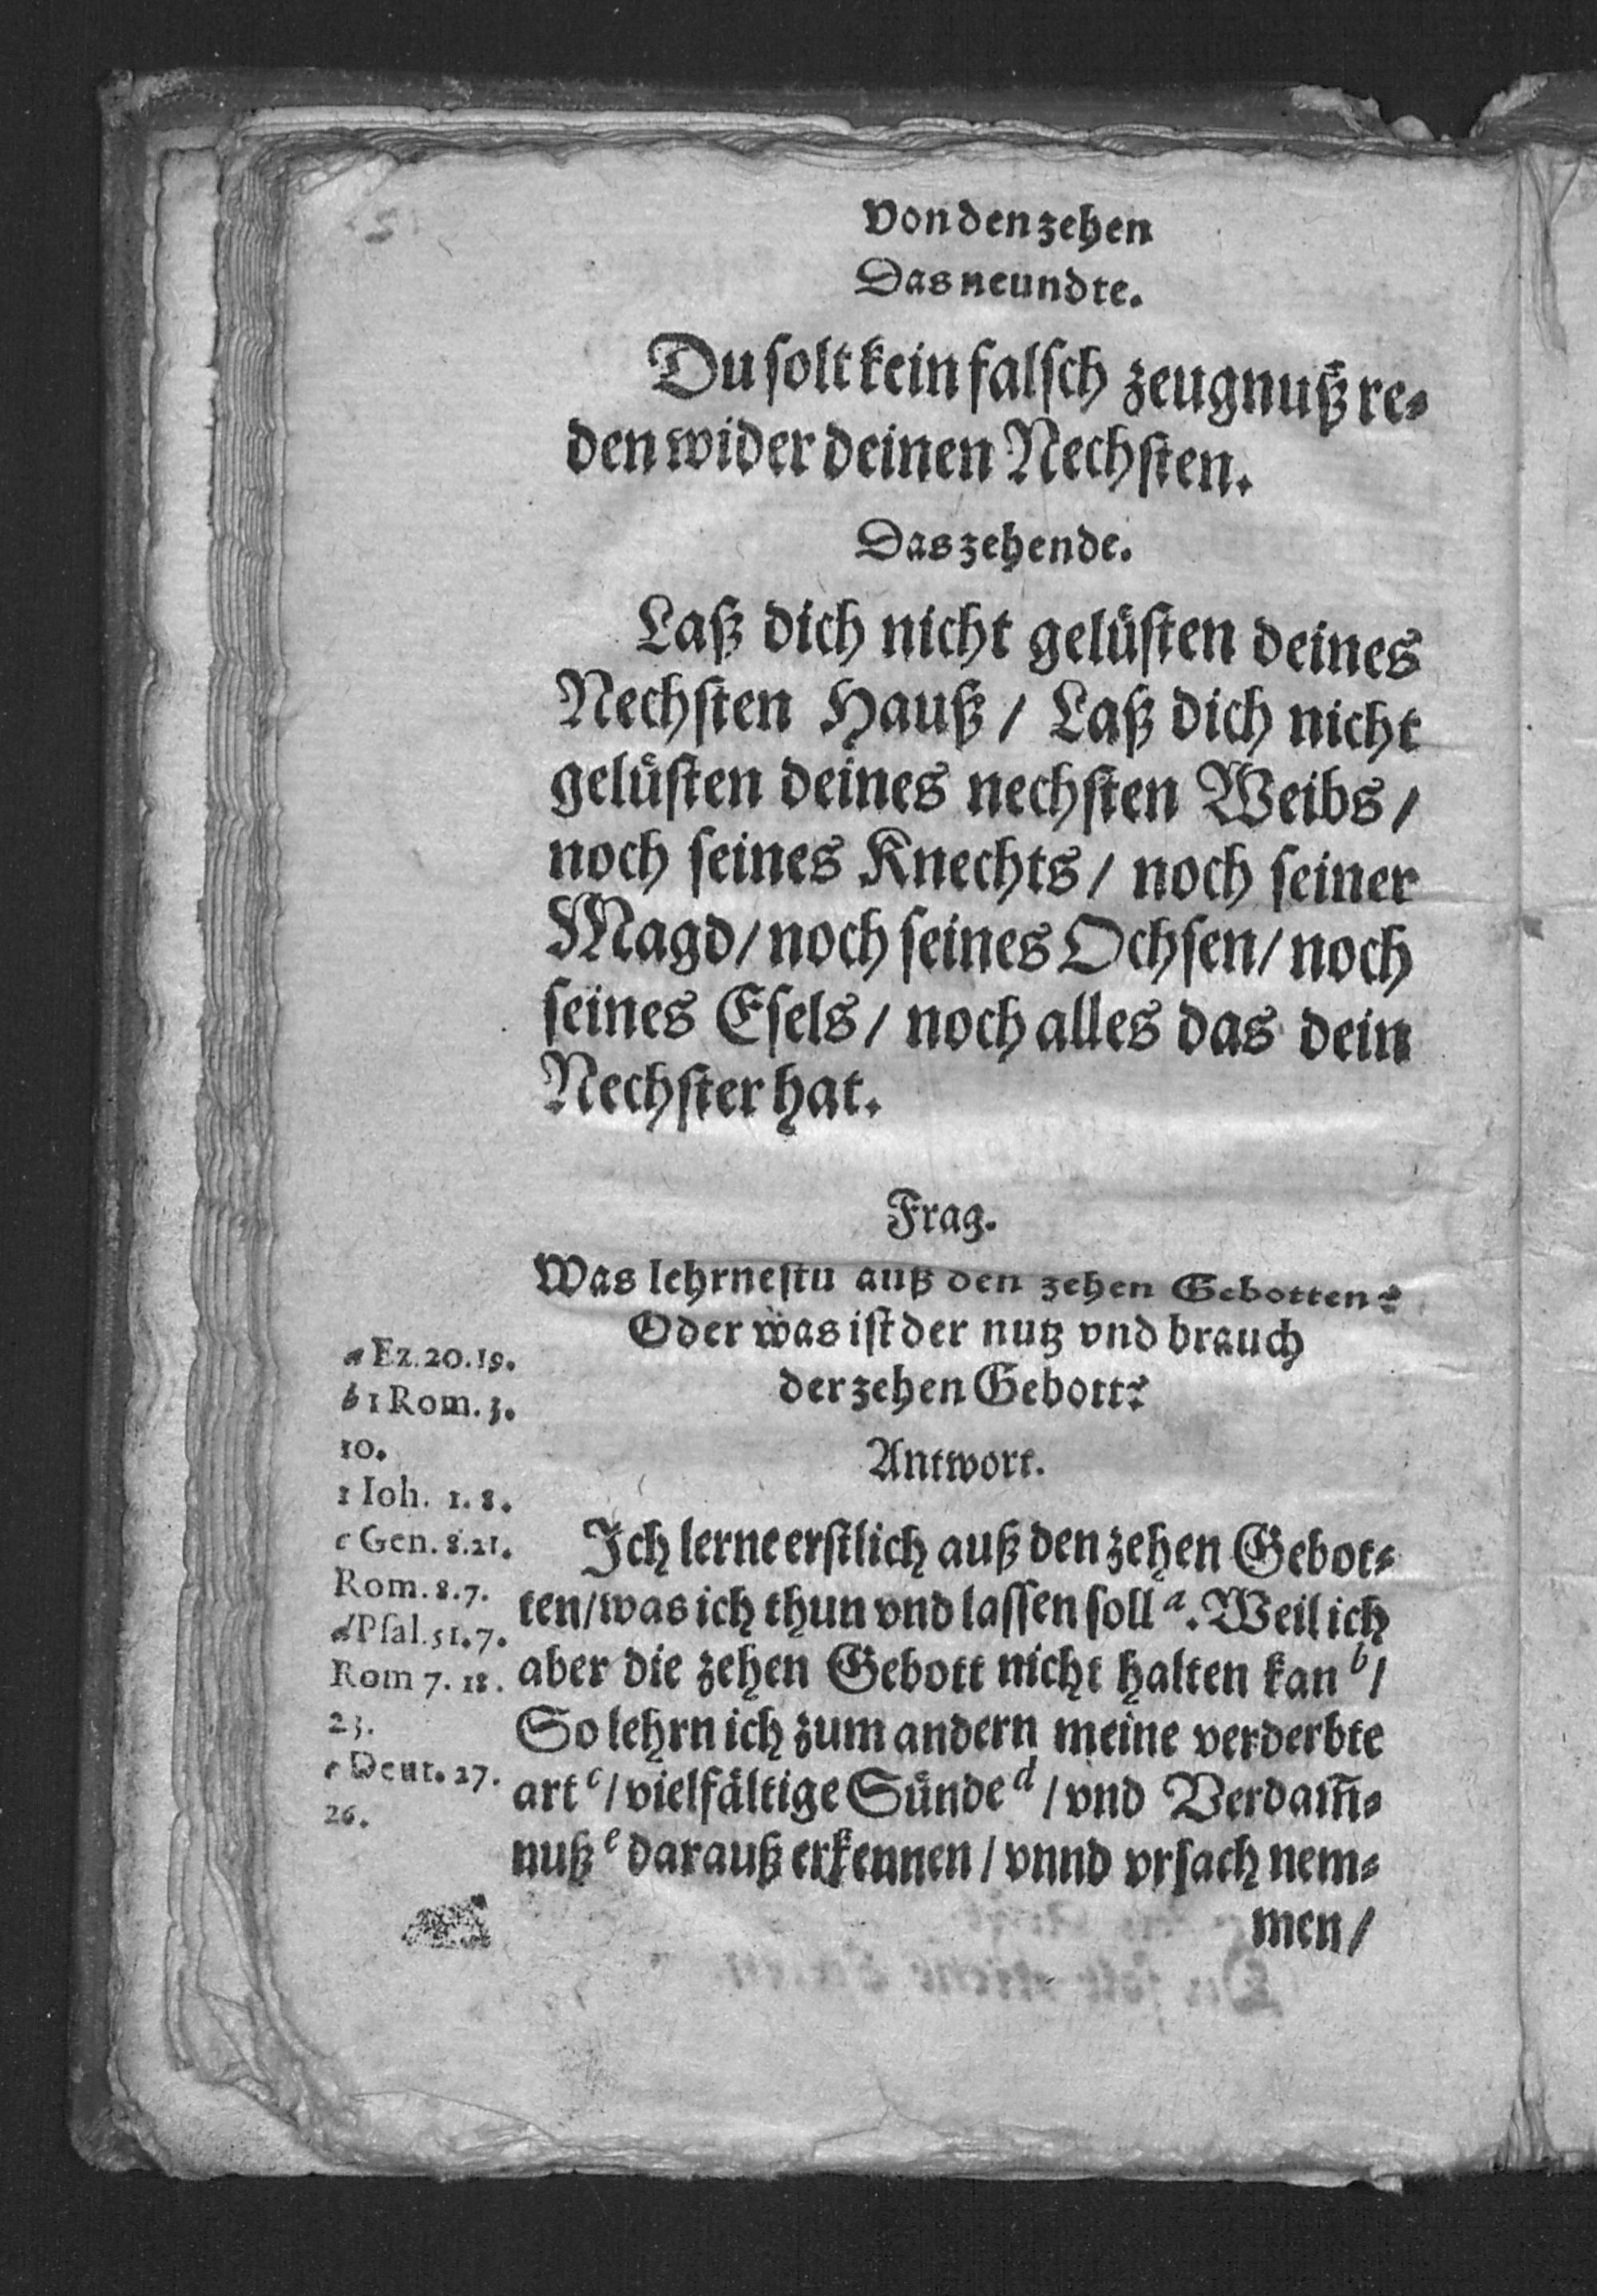 Von den zehen
Das neundte.
Du solt kein falsch zeugnuß re⸗
den wider deinen Nechsten.
Das zehende.
Laß dich nicht gelüsten deines
Nechsten Hauß / Laß dich nicht
gelüsten deines nechsten Weibs /
noch seines Knechts / noch seiner
Magd / noch seines Ochsen / noch
seines Esels / noch alles das dein
Nechster hat.
Frag.
Was lehrnestu auß den zehen Gebotten?
Oder was ist der nutz vnd brauch
der zehen Gebott?
Antwort.
Ich lerne erstlich auß den zehen Gebot⸗
ten / was ich thun vnd lassen soll a. Weil ich
aber die zehen Gebott nicht halten kan b /
So lehrn ich zum andern meine verderbte
art c / vielfältige Sünde d / vnd Verdam̄⸗
nuß e darauß erkennen / vnnd vrsach nem⸗
men /
a Ez. 20. 19.
b 1 Rom. 3.
10.
1 Ioh. 1. 8.
c Gen. 8. 21.
Rom. 8. 7.
d Psal. 51. 7.
Rom 7. 18.
23.
e Deut. 27.
26.